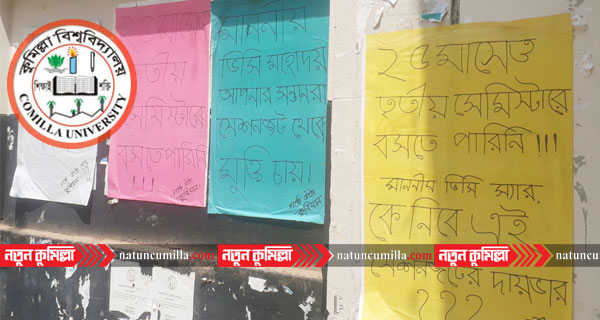 কুমিল্লা বিশ্ববিদ্যালয়
শিক্ষাই শক্তি
COMILLA UNIVERSITY
২৫ মাসেও
তৃতীয়
সেমিস্টারে
বসতে পারিনি
!!!!
মাননীয়
ভিসি মহোদয়
আপনার সন্তানরা
সেশনজট থেকে
মুক্তি চায়।
২৫ মাসেও
তৃতীয় সেমিস্টারে
বসতে পারিনি !!!
মাননীয় ভিসি স্যার,
কে নিবে এই
সেশনজটের দায়ভার
???
নতুন কুমিল্লা
natuncumilla.com
নতুন কুমিল্লা
natuncumilla.com
নতুন কুমিল্লা
natuncumilla.com